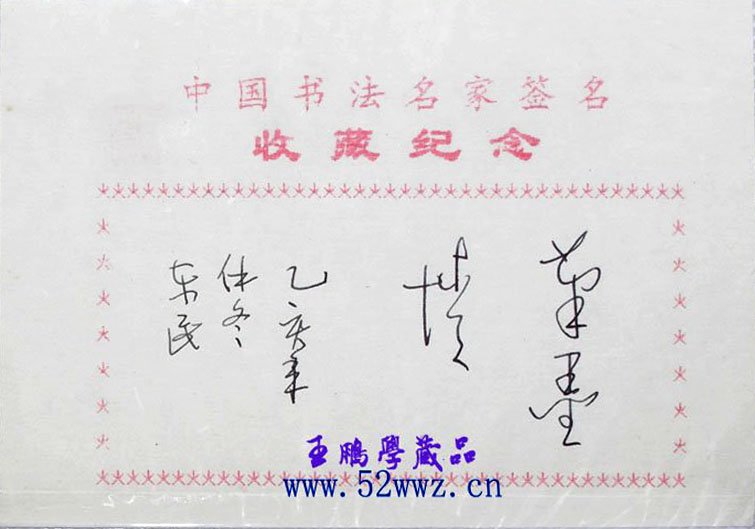 中国书法名家签名
收藏纪念
筆墨
乙亥年
仲冬
东民
王鹏學藏品
www.52wwz.cn